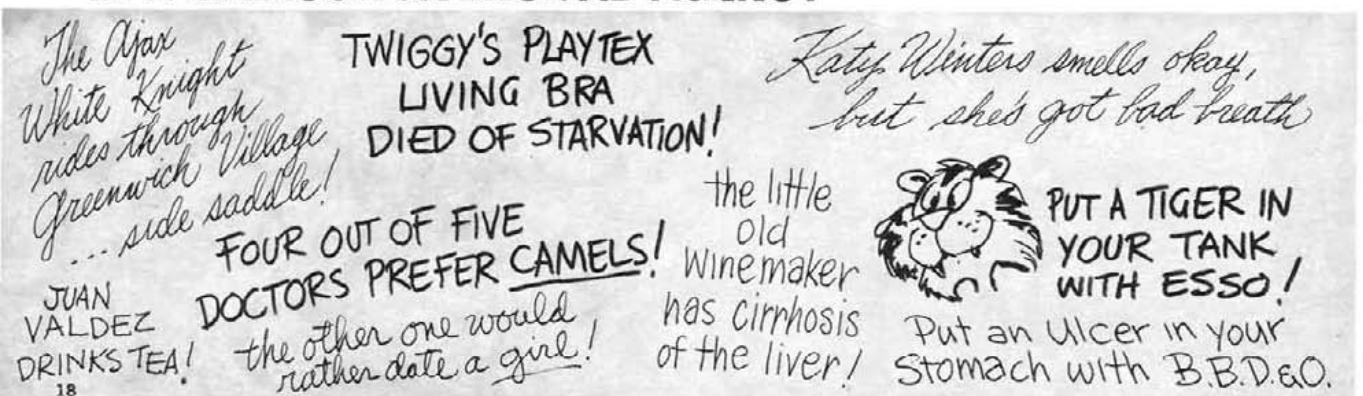 The Ajax
White Knight
rides through
Greenwich Village
... side saddle!
TWIGGY'S PLAYTEX
LIVING BRA
DIED OF STARVATION!
Katy Winters smells okay,
but she's got bad breath
FOUR OUT OF FIVE
DOCTORS PREFER CAMELS!
the other one would
rather date a girl!
the little
old
winemaker
has cirrhosis
of the liver!
PUT A TIGER IN
YOUR TANK
WITH ESSO!
Put an Ulcer in your
Stomach with B.B.D.&O.
JUAN
VALDEZ
DRINKS TEA!
18